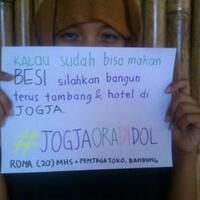 KALAU sudah bisa makan
BESI silahkan bangun
terus tambang & hotel di
JOGJA.
#JOGJAORADIDOL
RONA (20) MHS + PENJAGA TOKO, BANDUNG